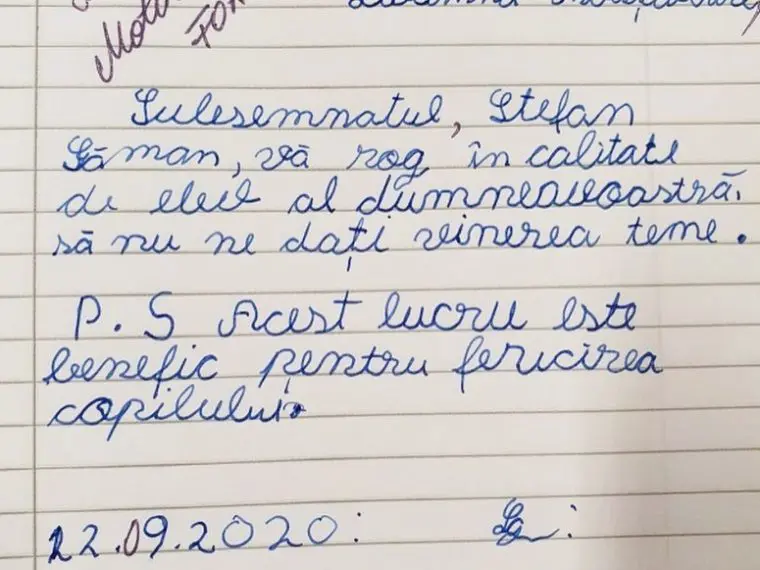 Sulesemnatul, Ștefan
Găman, vă rog în calitate
de elev al dumneavoastră,
să nu ne dați vinerea teme.
P.S Acest lucru este
benefic pentru fericirea
copilului.
22.09.2020: